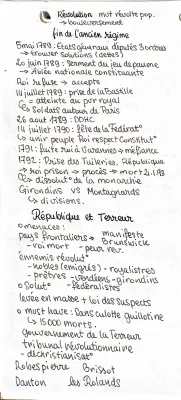 Révolution mvt révolte pop.
→ bouleversement
fin de l'ancien régime
5 mai 1789 : États généraux députés 3 ordres
→ trouver solutions (dettes)
20 juin 1789 : serment du jeu de paume
→ Ablée nationale constituante
Roi refuse → accepte
14 juillet 1789 : prise de la Bastille
- atteinte au pvr royal
Soldats autour de Paris
26 août 1789 : DDHC
14 juillet 1790 : fête de la Fédérat°
↳ unir peuple Roi respect Constitut°
1791 : fuite roi à Varennes → méfiance
1792 : Prise des Tuileries. République
→ roi prison → procès → mort 2.1.93
↳ dissolut° de la monarchie
Girondins vs Montagnards
↳ divisions.
République et Terreur
o menaces :
pays frontaliers → manifeste
- roi mort - peur rev. Brunswick
ennemis révolut°
- nobles (émigrés) - royalistes
- prêtres - vendéens - girondins
o Solut° - fédéralistes
levée en masse + loi des suspects
o must have : Sans culotte guillotine
↳ 15000 morts.
gouvernement de la Terreur
tribunal révolutionnaire
- déchristianisat°
Robespierre Brissot
Danton les Rolands